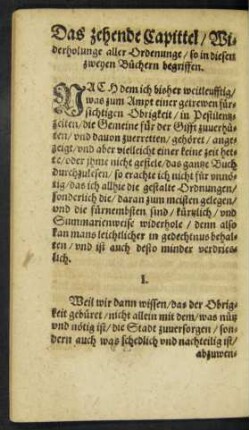 Das zehende Capittel / Wi-
derholunge aller Ordenunge / so in diesen
zweyen Büchern begriffen.
NACH dem ich bißher weitleufftig /
was zum Ampt einer getrewen für-
sichtigen Obrigkeit / in Pestilentz
zeiten / die Gemeine für der Gifft zuuerhü-
ten / vnd dauon zuerretten / gehöret / ange-
zeigt / vnd aber vielleicht einer keine zeit het-
te / oder jhme nicht gefiele / das gantze Buch
durchzulesen / so erachte ich nicht für vnnö-
tig / das ich allhie die gestalte Ordnungen /
sonderlich die / daran zum meisten gelegen /
vnd die fürnembsten sind / kürtzlich / vnd
Summarienweise widerhole / denn also
kan mans leichtlicher in gedechtnus behal-
ten / vnd ist auch desto minder verdries-
lich.
I.
Weil wir dann wissen / das der Obrig-
keit gebüret / nicht allein mit dem / was nütz
vnd nötig ist / die Stadt zuuersorgen / son-
dern auch was schedlich vnd nachteilig ist /
abzuwen-